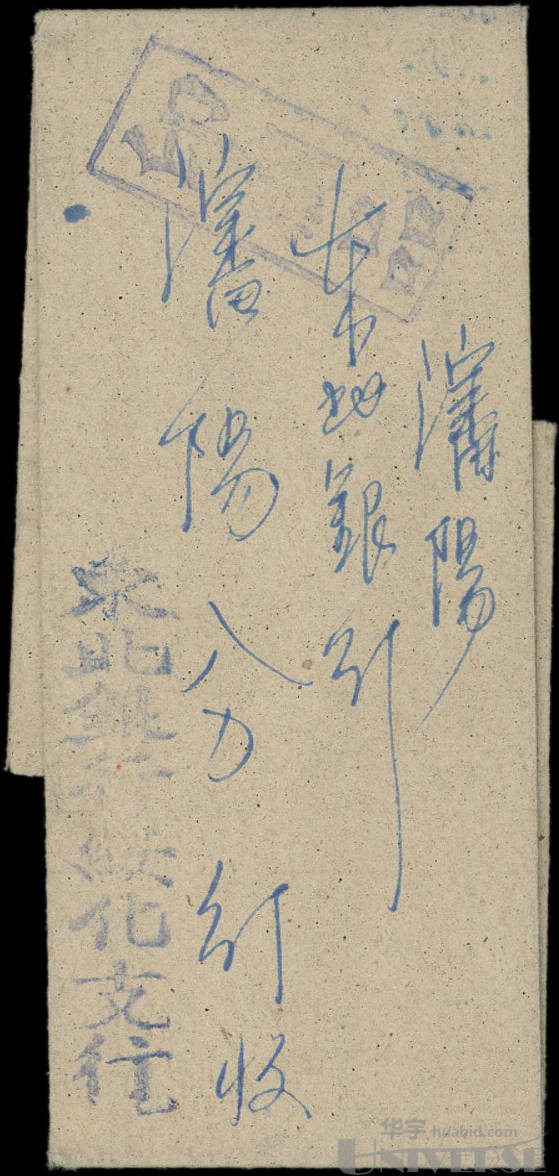 瀋陽
東北銀行
瀋陽分行收
東北銀行綏化支行
华宇 huabid.com
UNIVERSE